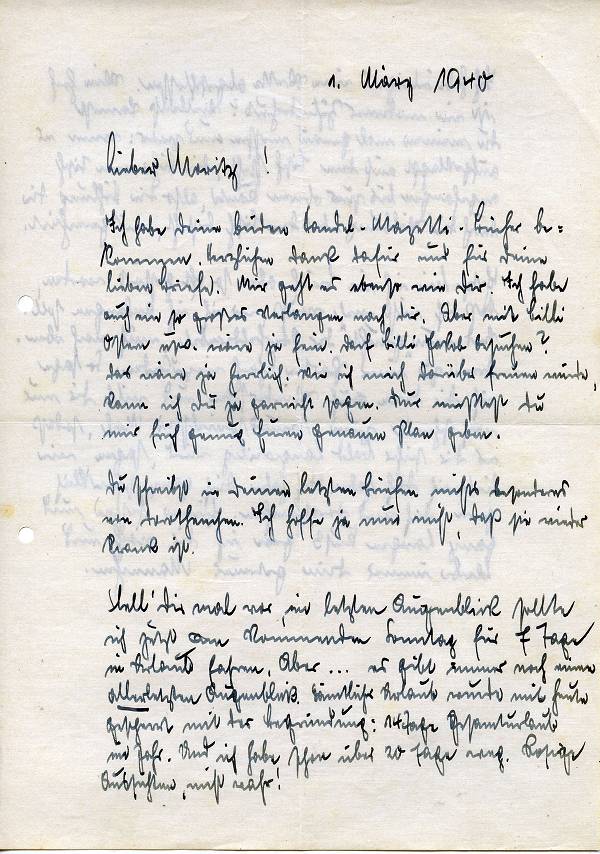 1. März 1940
Lieber Moritz!
Ich habe deine beiden Handel-Mazetti-Bücher be=
kommen. Herzlichen Dank dafür und für deine
lieben Briefe. Mir geht es ebenso wie dir. Ich habe
auch ein so großes Verlangen nach dir. Aber mit Lilli
Ostern usw. wäre ja fein. Darf Lilli Jakob besuchen?
Das wäre ja herrlich. Wie ich mich darüber freuen würde,
kann ich dir ja garnicht sagen. Nur müßtest du
mir früh genug Euren genauen Plan geben.
Du schreibst in deinen letzten Briefen nichts besonderes
von Dorothenchen. Ich hoffe ja nun nicht, daß sie wieder
krank ist.
Stell' dir mal vor, im letzten Augenblick sollte
ich jetzt am kommenden Sonntag für 7 Tage
in Urlaub fahren. Aber ... es gibt immer noch einen
allerletzten Augenblick. Sämtlicher Urlaub wurde mit heute
gesperrt mit der Begründung: 14 Tage Gesamturlaub
im Jahr. Und ich habe schon über 20 Tage weg. Rosige
Aussichten, nicht wahr!